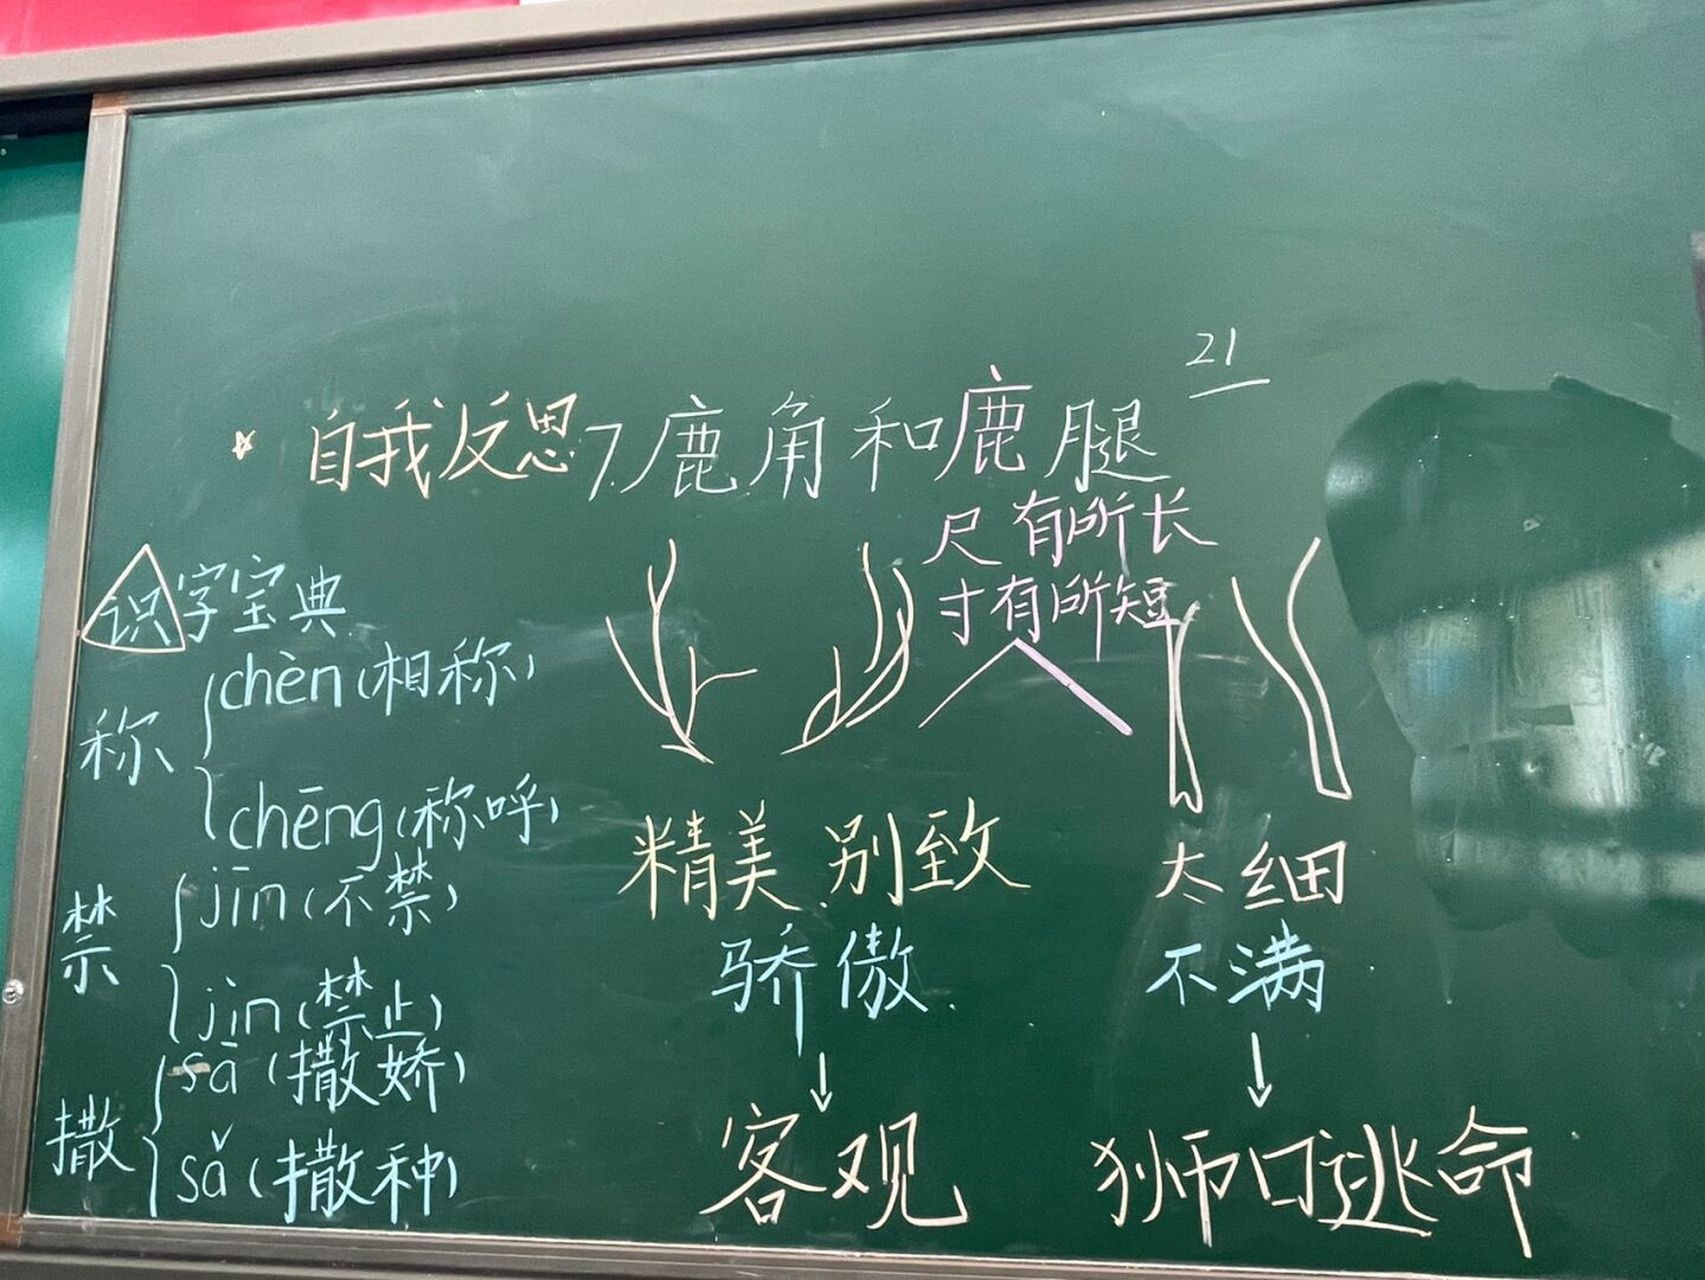 21
自我反思 7.鹿角和鹿腿
尺有所长
寸有所短
识字宝典
称
chèn(相称)
chēng(称呼)
禁
jīn(不禁)
jìn(禁止)
撒
sā(撒娇)
sǎ(撒种)
精美 别致
骄傲
↓
客观
太细
不满
↓
狮口逃命